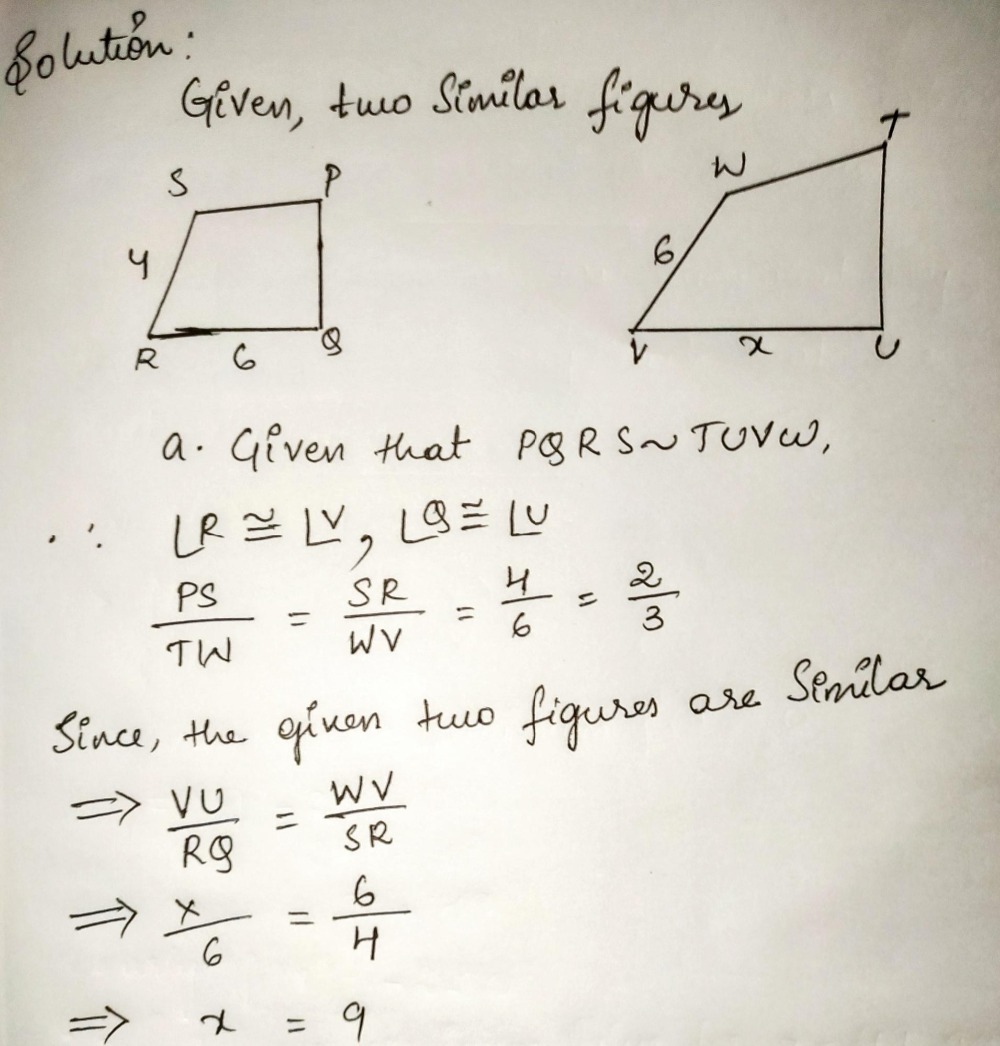 Solution:
Given, two Similar figures
S P
4
R 6 Q
W T
6
V x U
a. Given that PQRS ~ TUVW,
∴ ∠R ≅ ∠V, ∠Q ≅ ∠U
PS/TW = SR/WV = 4/6 = 2/3
Since, the given two figures are Similar
⇒ VU/RQ = WV/SR
⇒ x/6 = 6/4
⇒ x = 9